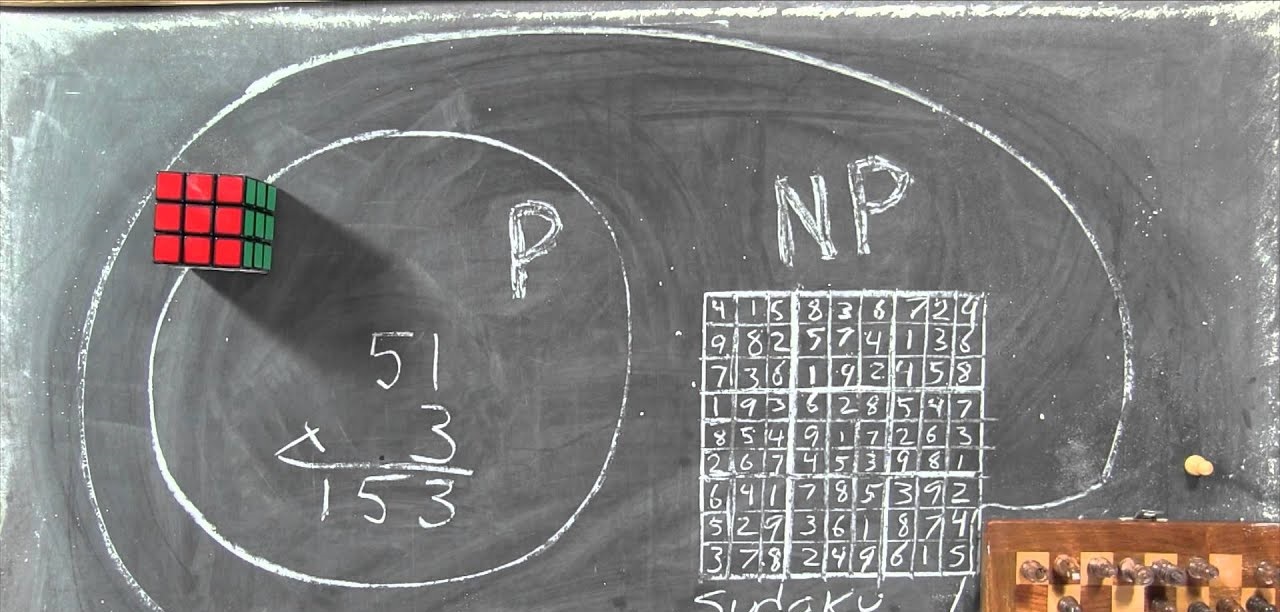 NP
P
51
× 3
153
4 1 5 8 3 6 7 2 9
9 8 2 5 7 4 1 3 6
7 3 6 1 9 2 4 5 8
1 9 3 6 2 8 5 4 7
8 5 4 9 1 7 2 6 3
2 6 7 4 5 3 9 8 1
6 4 1 7 8 5 3 9 2
5 2 9 3 6 1 8 7 4
3 7 8 2 4 9 6 1 5
Sudaku